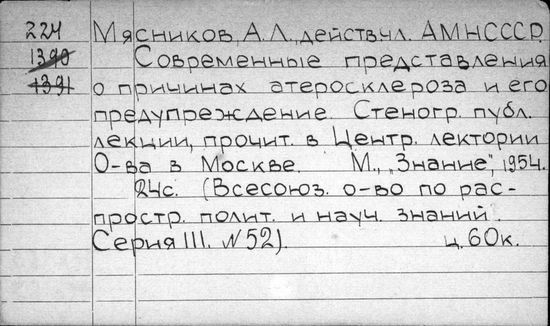 224 Мясников, А.Л., действ. чл. АМНСССР.
1390 Современные представления
1391 о причинах атеросклероза и его
предупреждение. Стеногр. публ.
лекции, прочит. в Центр. лектории
О-ва в Москве. М., „Знание", 1954.
24с. (Всесоюз. о-во по рас-
простр. полит. и науч. знаний.
Серия III. N 52). ц. 60к.